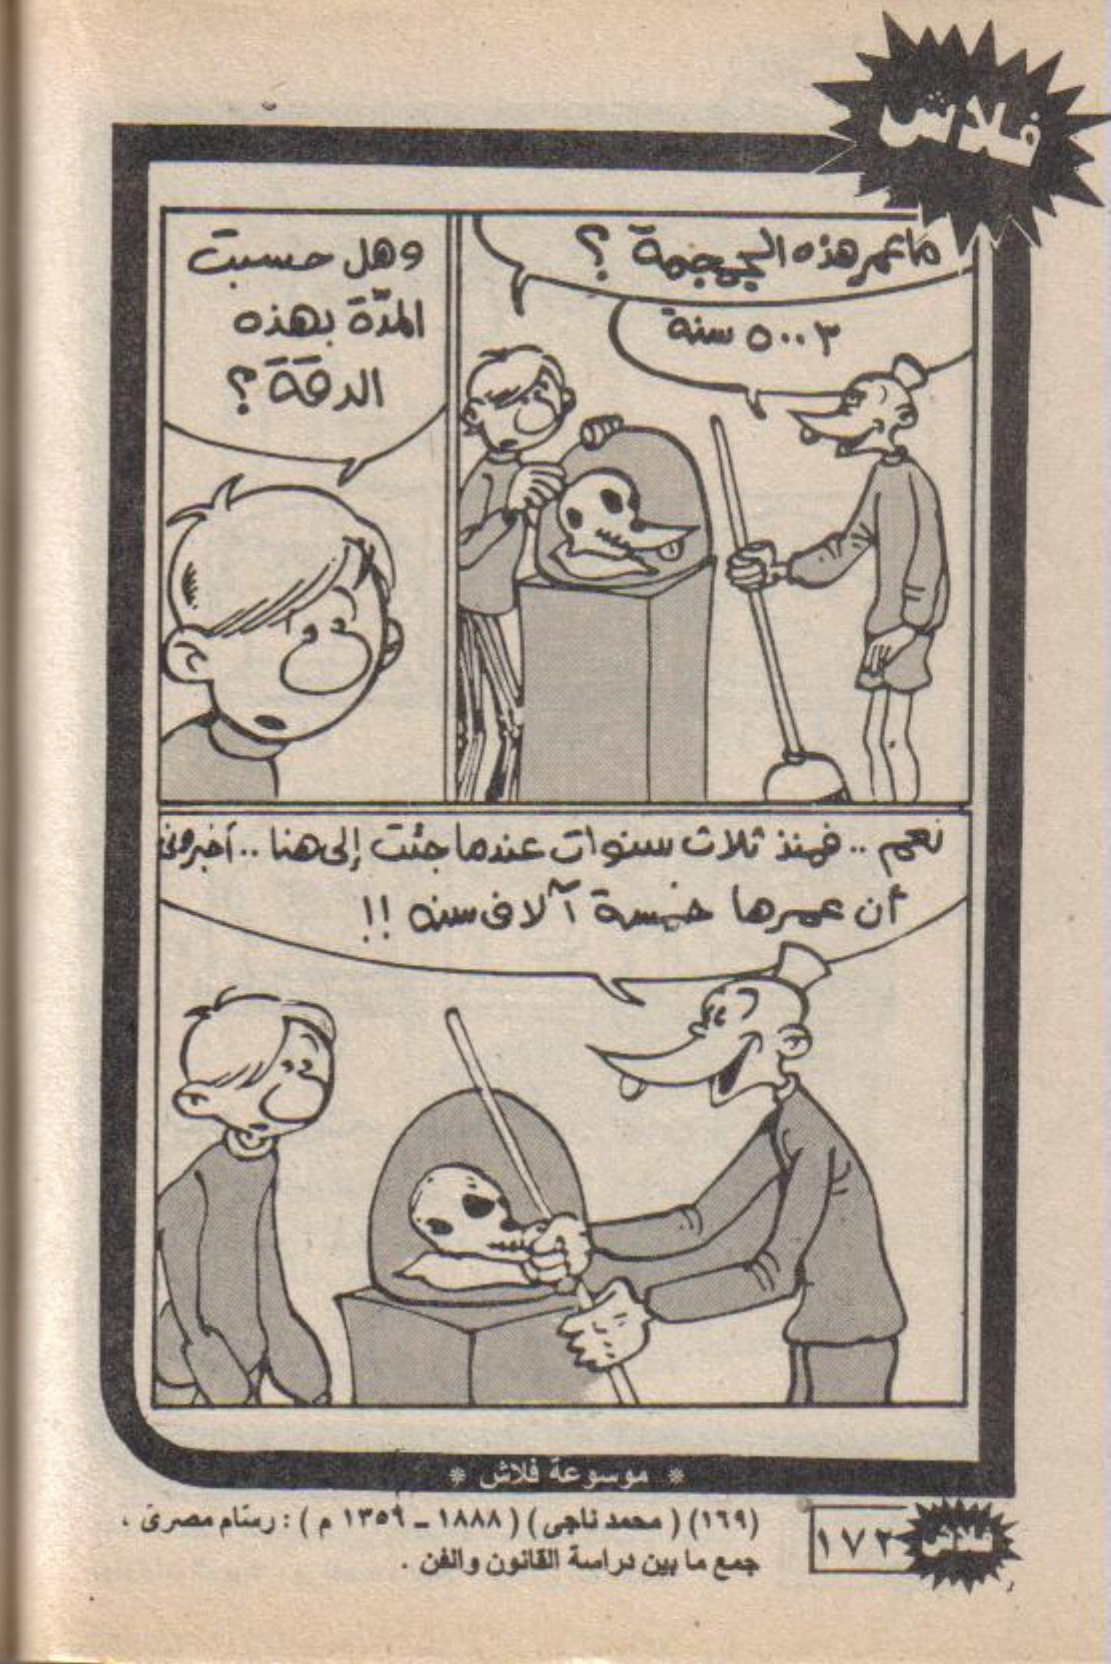 فلاش
ما عمر هذه الجمجمة ؟
٥٠٠٣ سنة
وهل حسبت
المدّة بهذه
الدقة ؟
نعم .. فمنذ ثلاث سنوات عندما جئت إلى هنا .. أخبرونى
أن عمرها خمسة آلاف سنه !!
* موسوعة فلاش *
(١٦٩) ( محمد ناجى ) ( ١٨٨٨ ــ ١٣٥٩ م ) : رسّام مصرى .
جمع ما بين دراسة القانون والفن .
١٧٢ فلاش